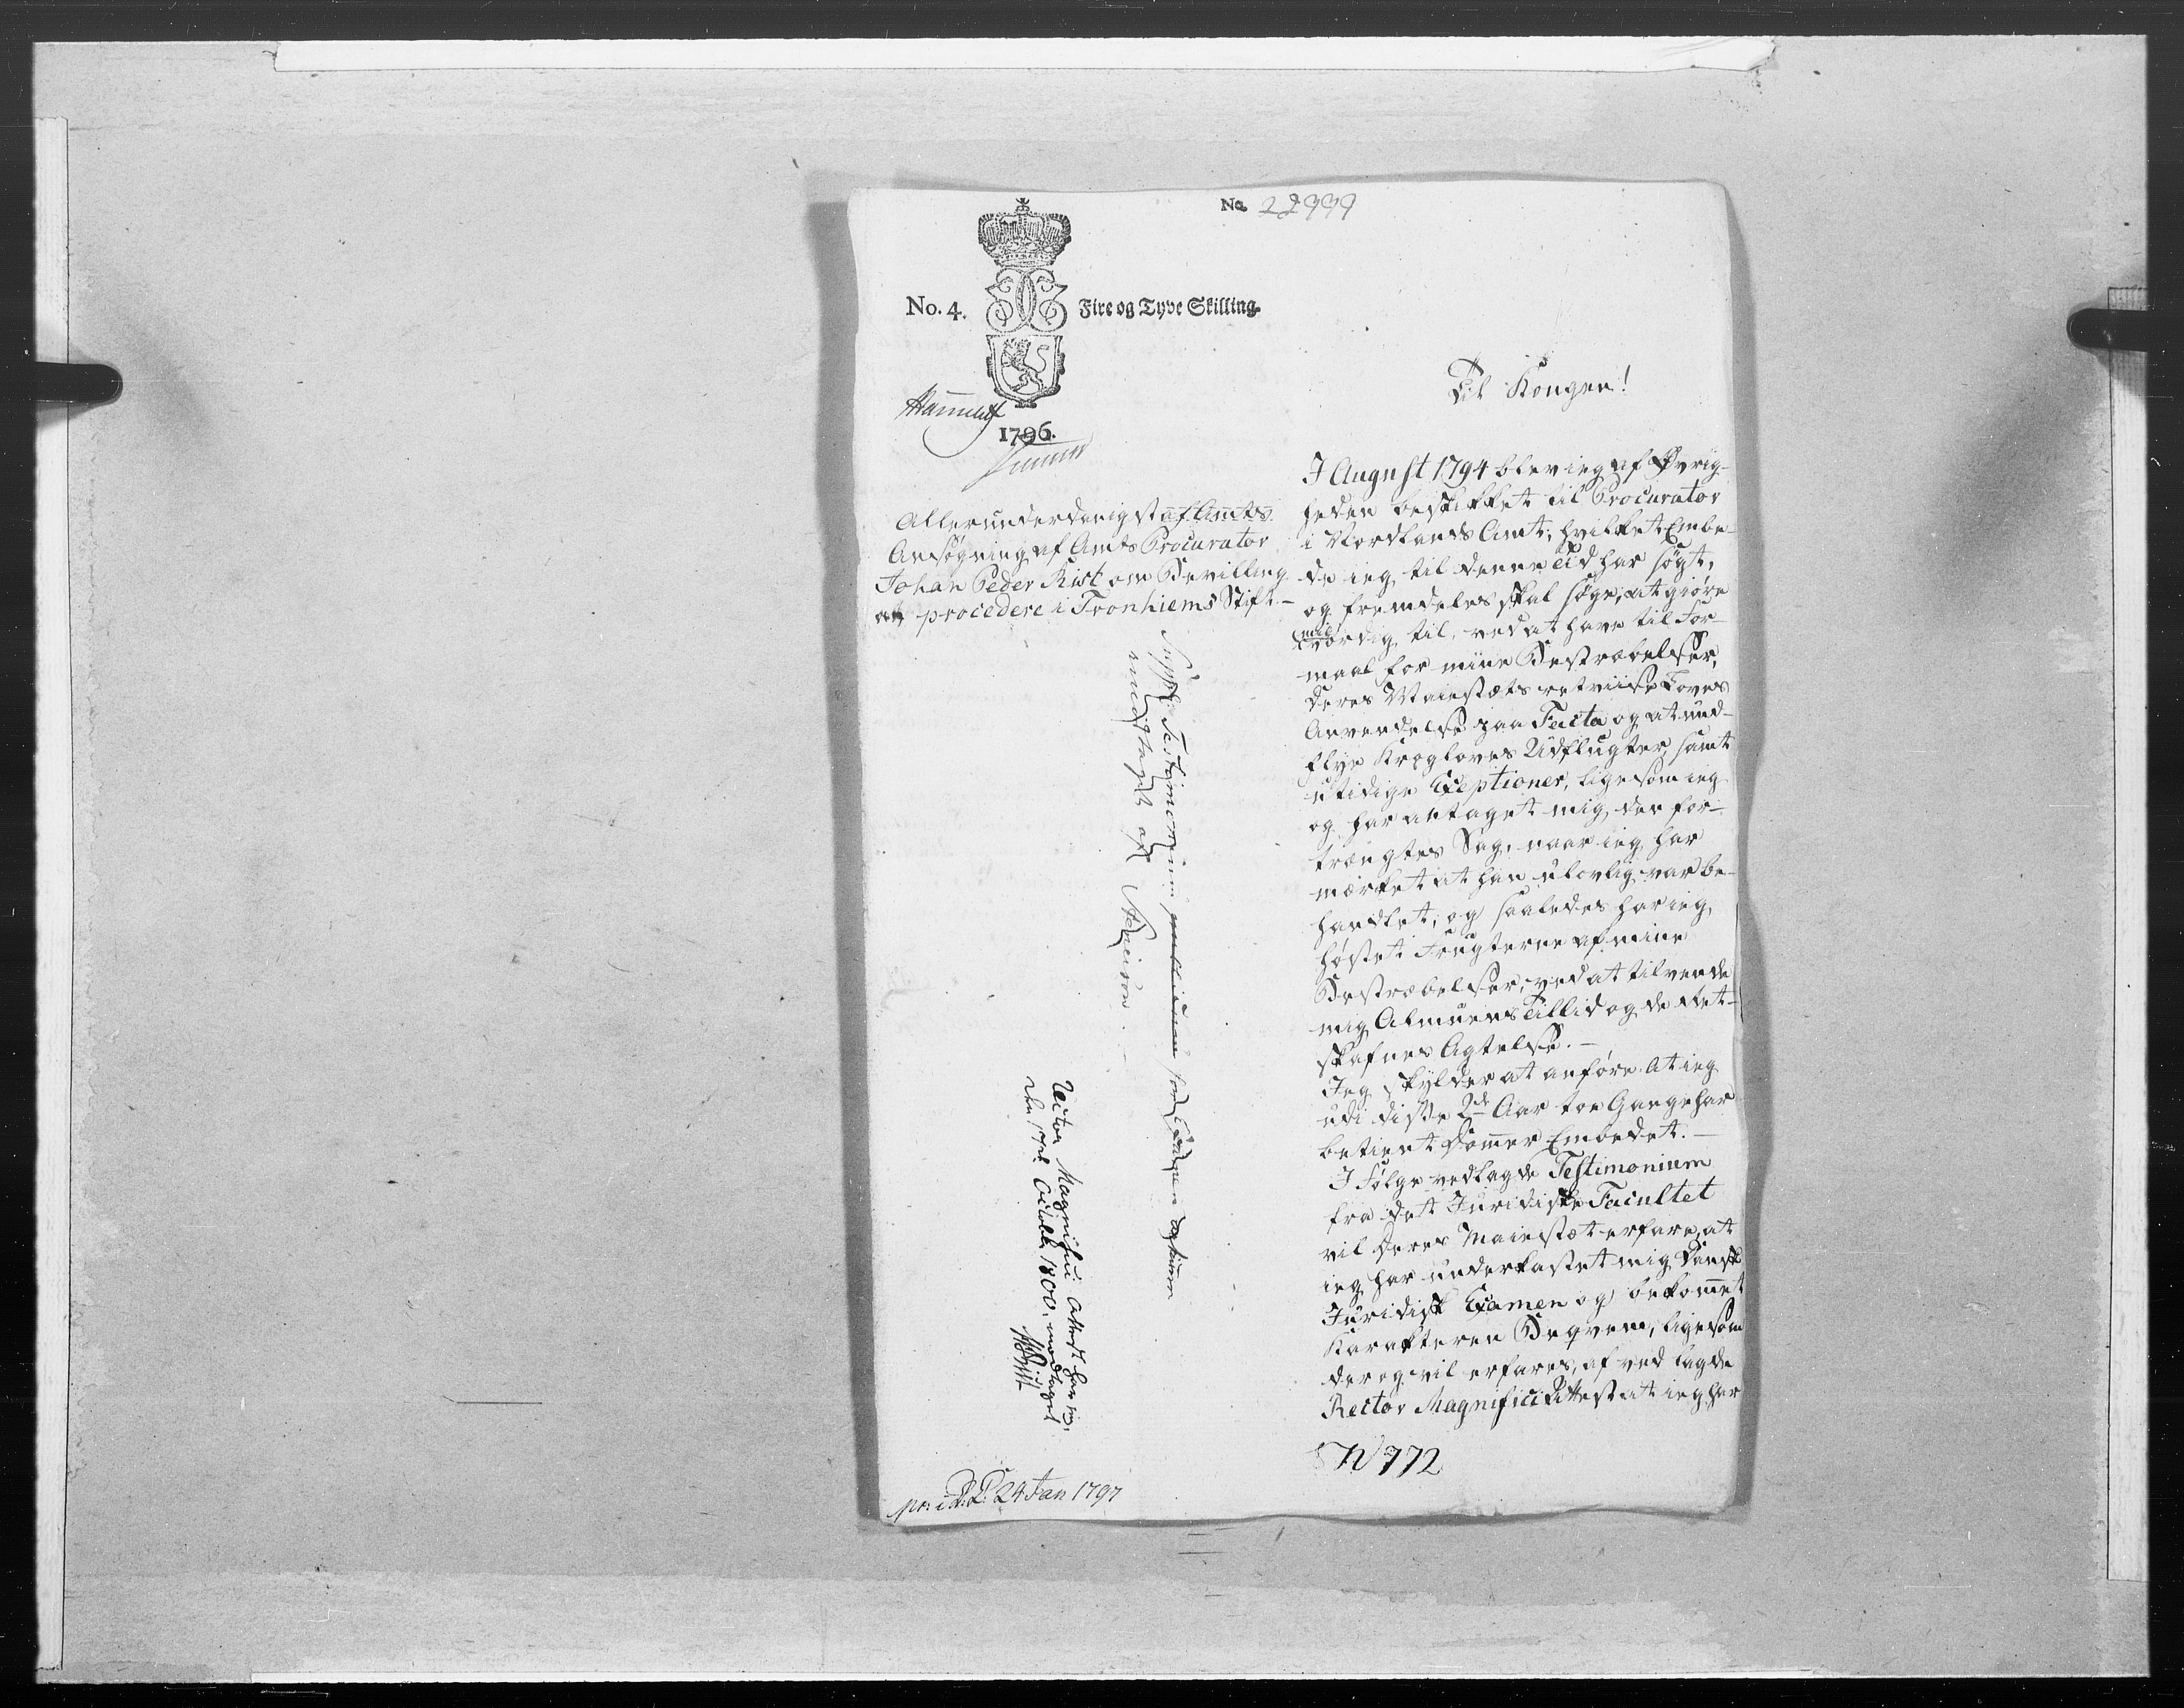 No. 22999
No. 4. Fire og Tyve Skilling.
1796.
Til Kongen!
Allerunderdanigst af Amts
Ansøgning af Amts Procurator
Johan Peder Rist om Bevilling
at procedere i Tronhiems Stift.
I August 1794 blev ieg af Øvrig-
heden beskikket til Procurator
i Nordlands Amt; hvilket Embe-
de ieg til denne Tid har søgt,
og fremdeles skal søge, at giøre
mig værdig til, ved at have til For-
maal for mine Bestræbelser,
Deres Maiestæts retviise Loves
Anvendelse paa Facta og at und-
flye Krogloves Udflugter, samt
utidige Exeptioner, ligesom ieg
og har antaget mig den for-
trængtes Sag, naar ieg har
mærket at han ulovlig var be-
handlet; og saaledes har ieg
høstet Frugterne af mine
Bestræbelser, ved at tilvende
mig Almuens Tillid og de Ret-
skafnes Agtelse. —
Jeg skylder at anføre at ieg
udi disse 2de Aar toe Gange har
betient Dom̄er Embedet. —
I Følge vedlagde Testimonium
fra det Juridiske Facultet
vil Deres Maiestæt erfare, at
ieg har underkastet mig Dansk
Juridisk Examen og bekom̄et
Karakteren Beqvem, ligesom
der og vil erfares, af ved lagde
Rector Magnifici Attest at ieg har
N 772
Testimonium
modtaget af
Rector Magnifici Attest har ieg,
den 17de Octobr 1800, modtaget
Rist
pr: i D: C: 24 Jan 1797